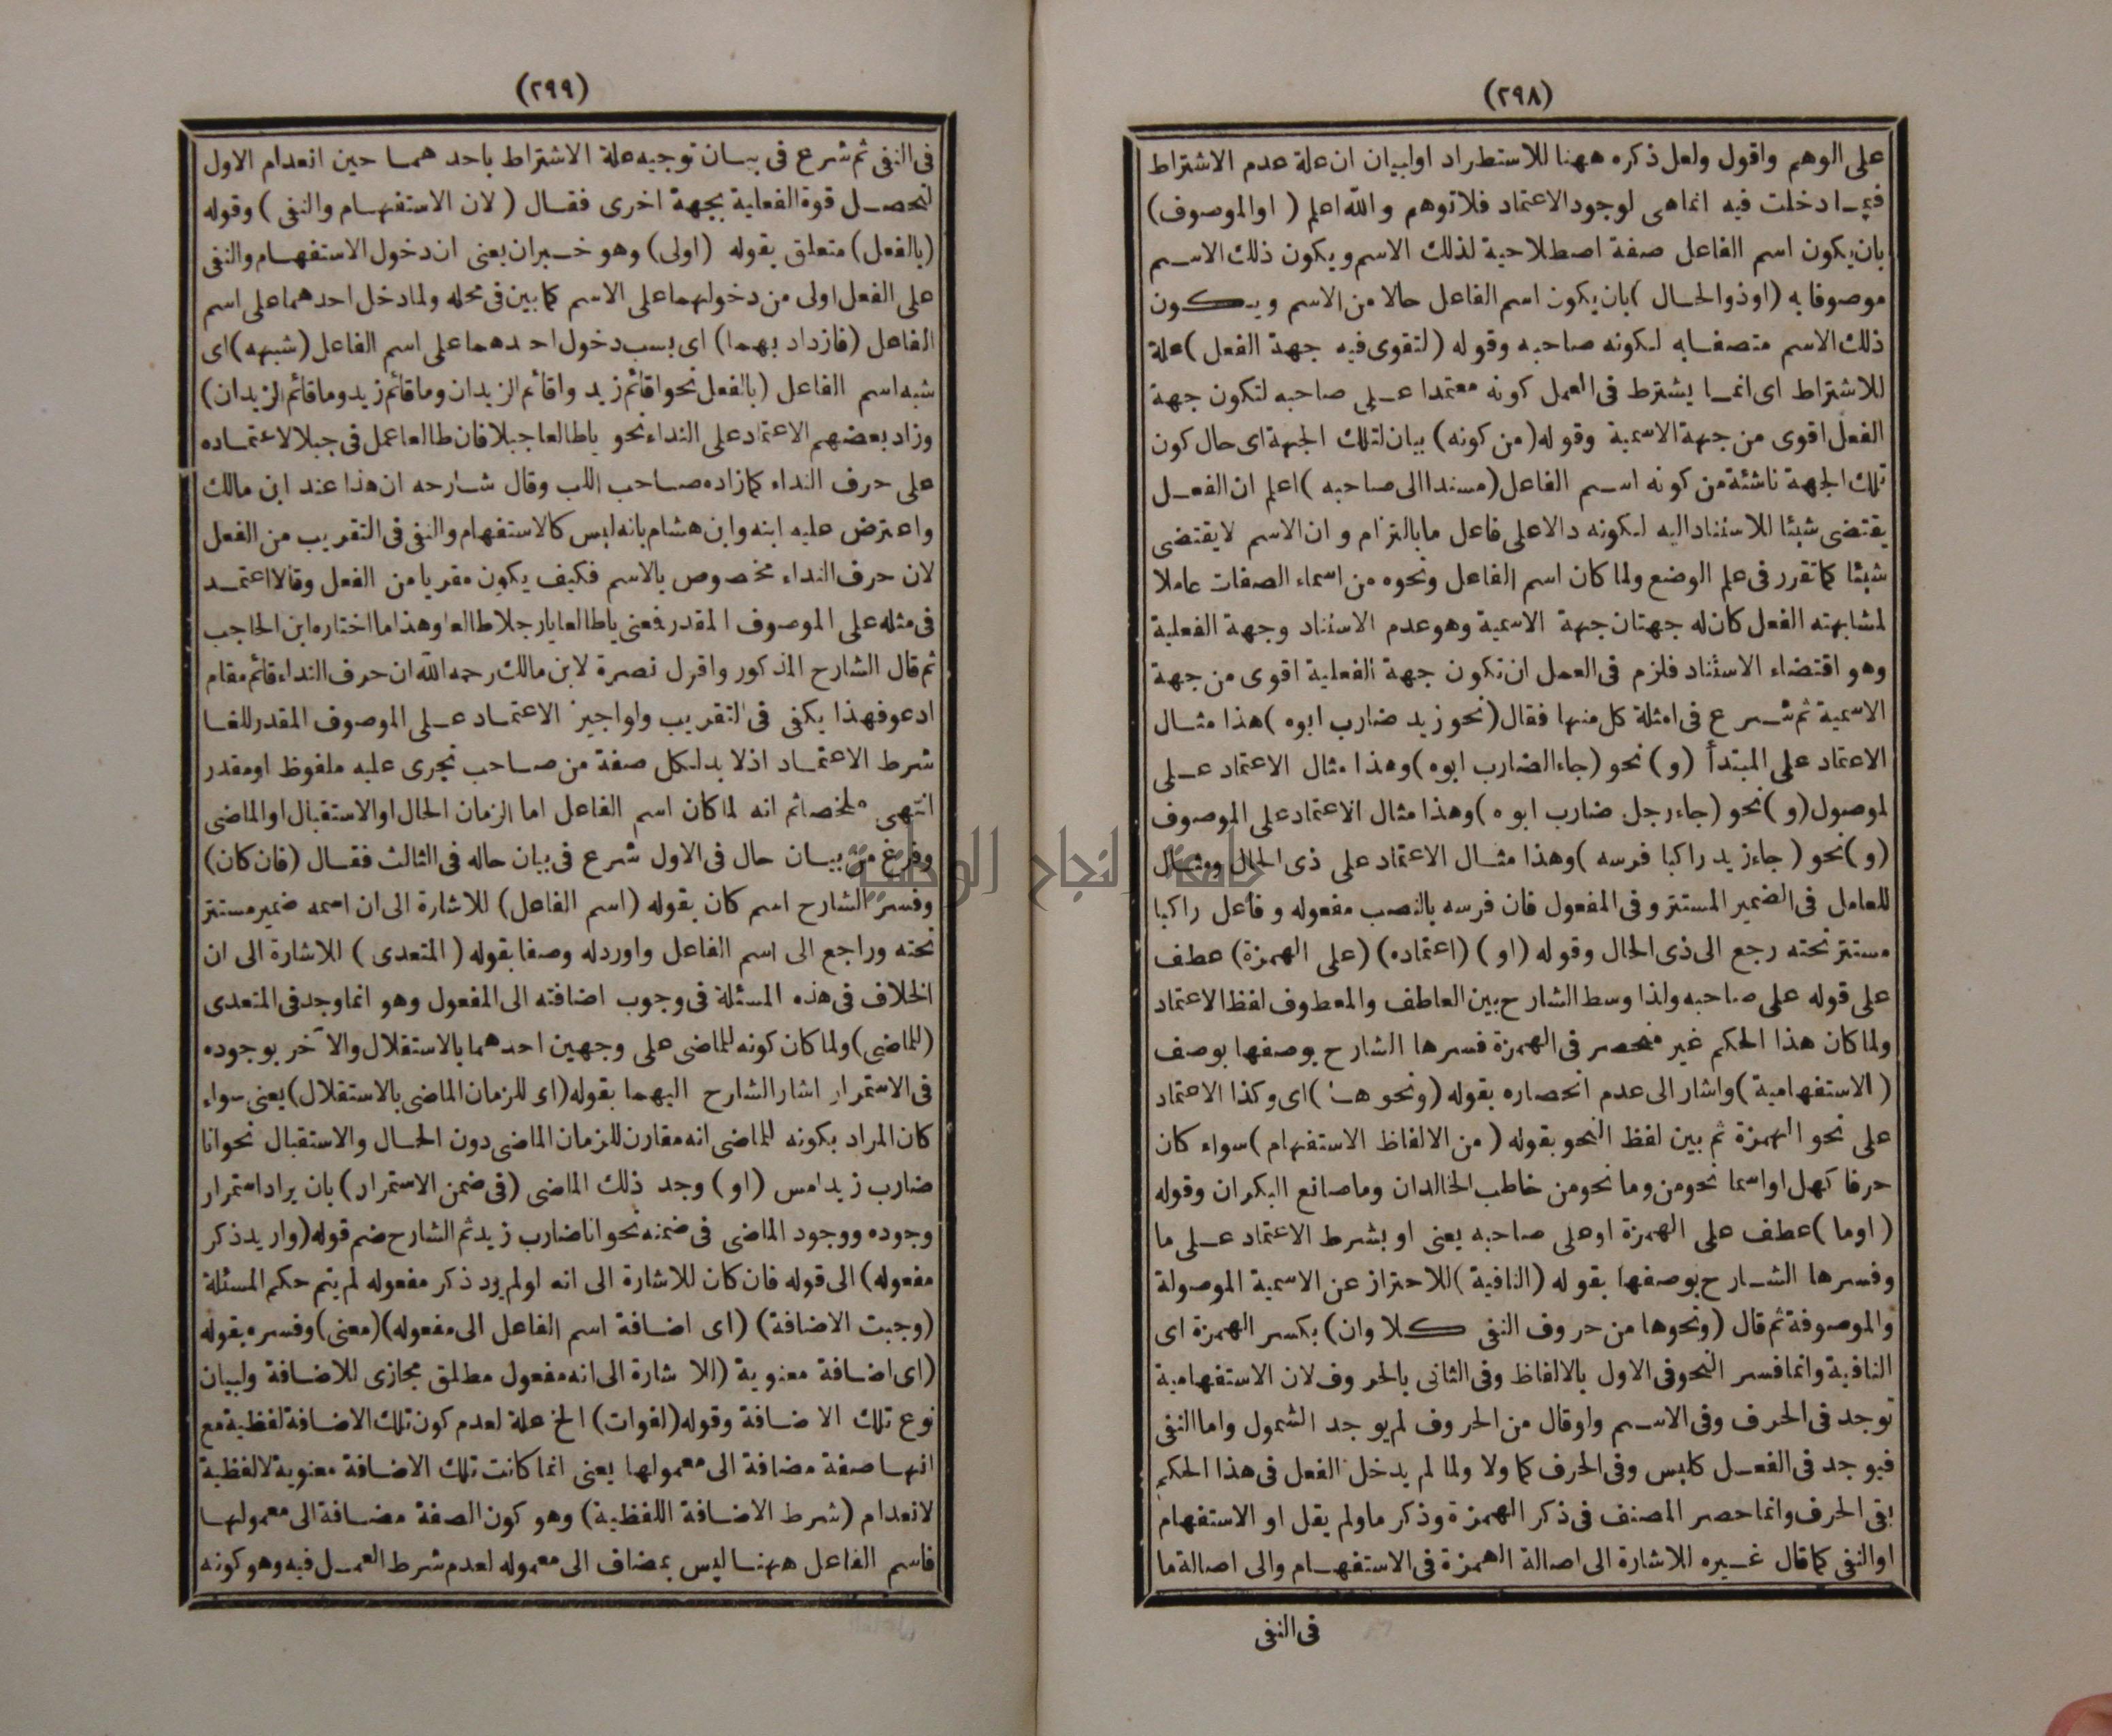 (٢٩٨)
على الوهم واقول ولعل ذكره ههنا للاستطراد او لبيان ان علة عدم الاشتراط
فيما دخلت فيه انما هى لوجود الاعتماد فلا توهم والله اعلم ( او الموصوف)
بان يكون اسم الفاعل صفة اصطلاحية لذلك الاسم ويكون ذلك الاسم
موصوفا به (او ذوالحال) بان يكون اسم الفاعل حالا من الاسم ويكون
ذلك الاسم متصفا به لكونه صاحبه وقوله (لتقوى فيه جهة الفعل) علة
للاشتراط اى انما يشترط فى العمل كونه معتمدا على صاحبه لتكون جهة
الفعل اقوى من جهة الاسمية وقوله (من كونه) بيان لتلك الجهة اى حال كون
تلك الجهة ناشئة من كونه اسم الفاعل (مسندا الى صاحبه) اعلم ان الفعل
يقتضى شيئا للاسناد اليه لكونه دالا على فاعل ما بالتزام وان الاسم لا يقتضى
شيئا كما تقرر فى علم الوضع ولما كان اسم الفاعل ونحوه من اسماء الصفات عاملا
لمشابهته الفعل كان له جهتان جهة الاسمية وهو عدم الاسناد وجهة الفعلية
وهو اقتضاء الاسناد فلزم فى العمل ان تكون جهة الفعلية اقوى من جهة
الاسمية ثم شرع فى امثلة كل منها فقال (نحو زيد ضارب ابوه) هذا مثال
الاعتماد على المبتدأ (و) نحو (جاء الضارب ابوه) وهذا مثال الاعتماد على
لموصول (و) نحو (جاء رجل ضارب ابوه) وهذا مثال الاعتماد على الموصوف
(و) نحو (جاء زيد راكبا فرسه) وهذا مثال الاعتماد على ذى الحال ومثال
للعامل فى الضمير المستتر وفى المفعول فان فرسه بالنصب مفعوله وفاعل راكبا
مستتر تحته رجع الى ذى الحال وقوله (او) (اعتماده) (على الهمزة) عطف
على قوله على صاحبه ولذا وسط الشارح بين العاطف والمعطوف لفظ الاعتماد
ولما كان هذا الحكم غير منحصر فى الهمزة فسرها الشارح بوصفها بوصف
(الاستفهامية) واشار الى عدم انحصاره بقوله (ونحوها) اى وكذا الاعتماد
على نحو الهمزة ثم بين لفظ النحو بقوله (من الالفاظ الاستفهام) سواء كان
حرفا كهل او اسما نحو من وما نحو من خاطب الخالدان وما صانع البكران وقوله
(اوما) عطف على الهمزة او على صاحبه يعنى او بشرط الاعتماد على ما
وفسرها الشارح بوصفها بقوله (النافية) للاحتراز عن الاسمية الموصولة
والموصوفة ثم قال (ونحوها من حروف النفى كلا وان) بكسر الهمزة اى
النافية وانما فسر النحو فى الاول بالالفاظ وفى الثانى بالحروف لان الاستفهامية
توجد فى الحرف وفى الاسم ولو قال من الحروف لم يوجد الشمول واما النفى
فيوجد فى الفعل كليس وفى الحرف كما ولا ولما لم يدخل الفعل فى هذا الحكم
بقى الحرف وانما حصر المصنف فى ذكر الهمزة وذكر ما ولم يقل او الاستفهام
او النفى كما قال غيره للاشارة الى اصالة الهمزة فى الاستفهام والى اصالة ما
فى النفى
(٢٩٩)
فى النفى ثم شرع فى بيان توجيه علة الاشتراط باحدهما حين انعدام الاول
لتحصل قوة الفعلية بجهة اخرى فقال (لان الاستفهام والنفى) وقوله
(بالفعل) متعلق بقوله (اولى) وهو خبران يعنى ان دخول الاستفهام والنفى
على الفعل اولى من دخولهما على الاسم كما بين فى محله ولما دخل احدهما على اسم
الفاعل (فازداد بهما) اى بسبب دخول احدهما على اسم الفاعل (شبهه) اى
شبه اسم الفاعل (بالفعل نحو اقائم زيد واقائم الزيدان وما قائم زيد وما قائم الزيدان)
وزاد بعضهم الاعتماد على النداء نحو ياطالعا جبلا فان طالعا عمل فى جبلا لاعتماده
على حرف النداء كما زاده صاحب اللب وقال شارحه ان هذا عند ابن مالك
واعترض عليه ابنه وابن هشام بانه ليس كالاستفهام والنفى فى التقريب من الفعل
لان حرف النداء مخصوص بالاسم فكيف يكون مقربا من الفعل وقالا اعتمد
فى مثله على الموصوف المقدر فمعنى ياطالعا يارجلا طالعا وهذا ما اختاره ابن الحاجب
ثم قال الشارح المذكور واقول نصرة لابن مالك رحمه الله ان حرف النداء قائم مقام
ادعو فهذا يكفى فى التقريب ولو اجيز الاعتماد على الموصوف المقدر للغا
شرط الاعتماد اذ لا بد لكل صفة من صاحب تجرى عليه ملفوظ او مقدر
انتهى ملخصا ثم انه لما كان اسم الفاعل اما الزمان الحال او الاستقبال او الماضى
وفرغ من بيان حال فى الاول شرع فى بيان حاله فى الثالث فقال (فان كان)
وفسر الشارح اسم كان بقوله (اسم الفاعل) للاشارة الى ان اسمه ضمير مستتر
تحته وراجع الى اسم الفاعل واورد له وصفا بقوله (المتعدى) للاشارة الى ان
الخلاف فى هذه المسئلة فى وجوب اضافته الى المفعول وهو انما وجد فى المتعدى
(للماضى) ولما كان كونه للماضى على وجهين احدهما بالاستقلال والآخر بوجوده
فى الاستمرار اشار الشارح اليهما بقوله (اى للزمان الماضى بالاستقلال) يعنى سواء
كان المراد بكونه للماضى انه مقارن للزمان الماضى دون الحال والاستقبال نحو انا
ضارب زيد امس (او) وجد ذلك الماضى (فى ضمن الاستمرار) بان يراد استمرار
وجوده ووجود الماضى فى ضمنه نحو انا ضارب زيد ثم الشارح ضم قوله (واريد ذكر
مفعوله) الى قوله فان كان للاشارة الى انه لو لم يرد ذكر مفعوله لم يتم حكم المسئلة
(وجبت الاضافة) (اى اضافة اسم الفاعل الى مفعوله) (معنى) وفسره بقوله
(اى اضافة معنوية (للاشارة الى انه مفعول مطلق مجازى للاضافة ولبيان
نوع تلك الاضافة وقوله (لفوات) الخ علة لعدم كون تلك الاضافة لفظية مع
انها صفة مضافة الى معمولها يعنى انما كانت تلك الاضافة معنوية لا لفظية
لانعدام (شرط الاضافة اللفظية) وهو كون الصفة مضافة الى معمولها
فاسم الفاعل ههنا ليس بمضاف الى معموله لعدم شرط العمل فيه وهو كونه
جامعة النجاح الوطنية